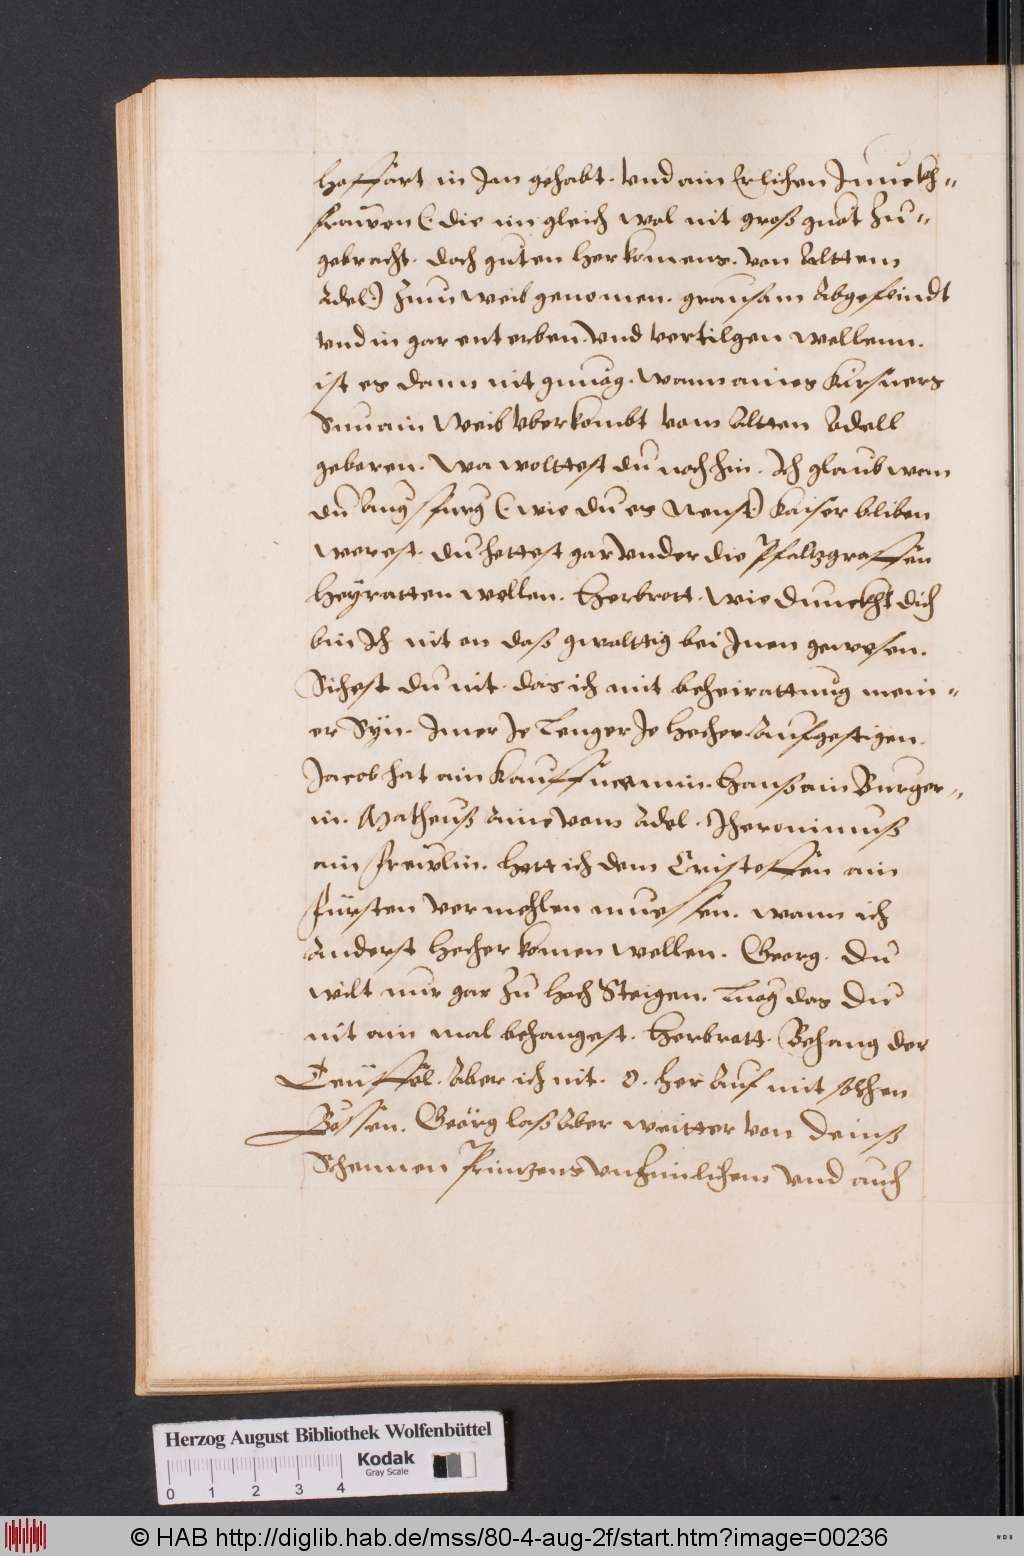 hoffart in Jm gehabt. vnd ain Erlichen Junckh=
frawen (die im gleich wol nit groß guot zu=
gebracht. doch guten herkomens. von Alttem
Adel) zum weib genomen. grausam Abgefeindt
vnd in gar enterben. vnd vertilgen wellenn.
ist es dann nit gnuog. wann aines Kirsners
Sun ain Weib vberkombt vom Altten Adell
geboren. wa wolttest du noch hin. Jch glaub wan
du Augsfurg (wie du es Nenst) Kaiser bliben
werest. du hettest gar vnder die Pfaltzgraffen
heyratten wellen. Herbrott. wie dunckht dich
bin Jch nit an daß gwalttig bei Jnen gewesen.
Sichest du nit. das ich mit beheirattnug mein=
er Syn. Jmer Je Lenger Je hecher Aufgestigen.
Jacob hat ain Kauffmennin. Hanß ain Burger=
in. Matheuß Aine vom Adel. Jheronimuß
ain Frewlin. hett ich dem Cristoffen ain
Fürsten vermehlen muessen. wann ich
Anderst hecher komen wellen. Georg. Du
wilt nur gar zu hoch Steigen. Luog das Du
nit ain mal behangest. Herbrott. Behang der
Teüffel. Aber ich nit. O. her Auf mit solchen
Bossen. Geörg laß Aber weitter von deinß
Schennen Prinzens vnzimlichem vnd auch
Herzog August Bibliothek Wolfenbüttel
Kodak
Gray Scale
0 1 2 3 4
© HAB http://diglib.hab.de/mss/80-4-aug-2f/start.htm?image=00236